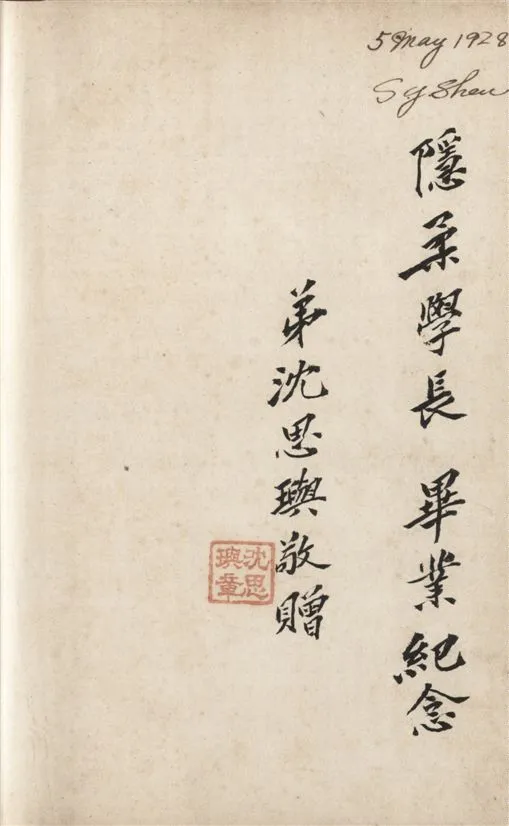 5 May 1928
S Y Shen
隱柔學長 畢業紀念
弟沈思璵敬贈
沈思
璵章